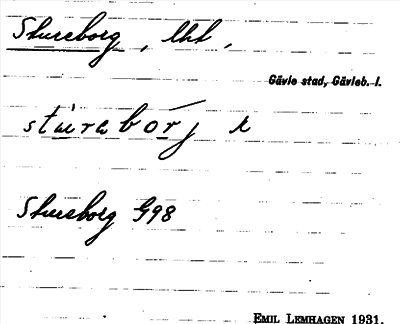 Stureborg, lht,
Gävle stad, Gävleb. l.
stureborj
Stureborg G98
EMIL LEMHAGEN 1931.